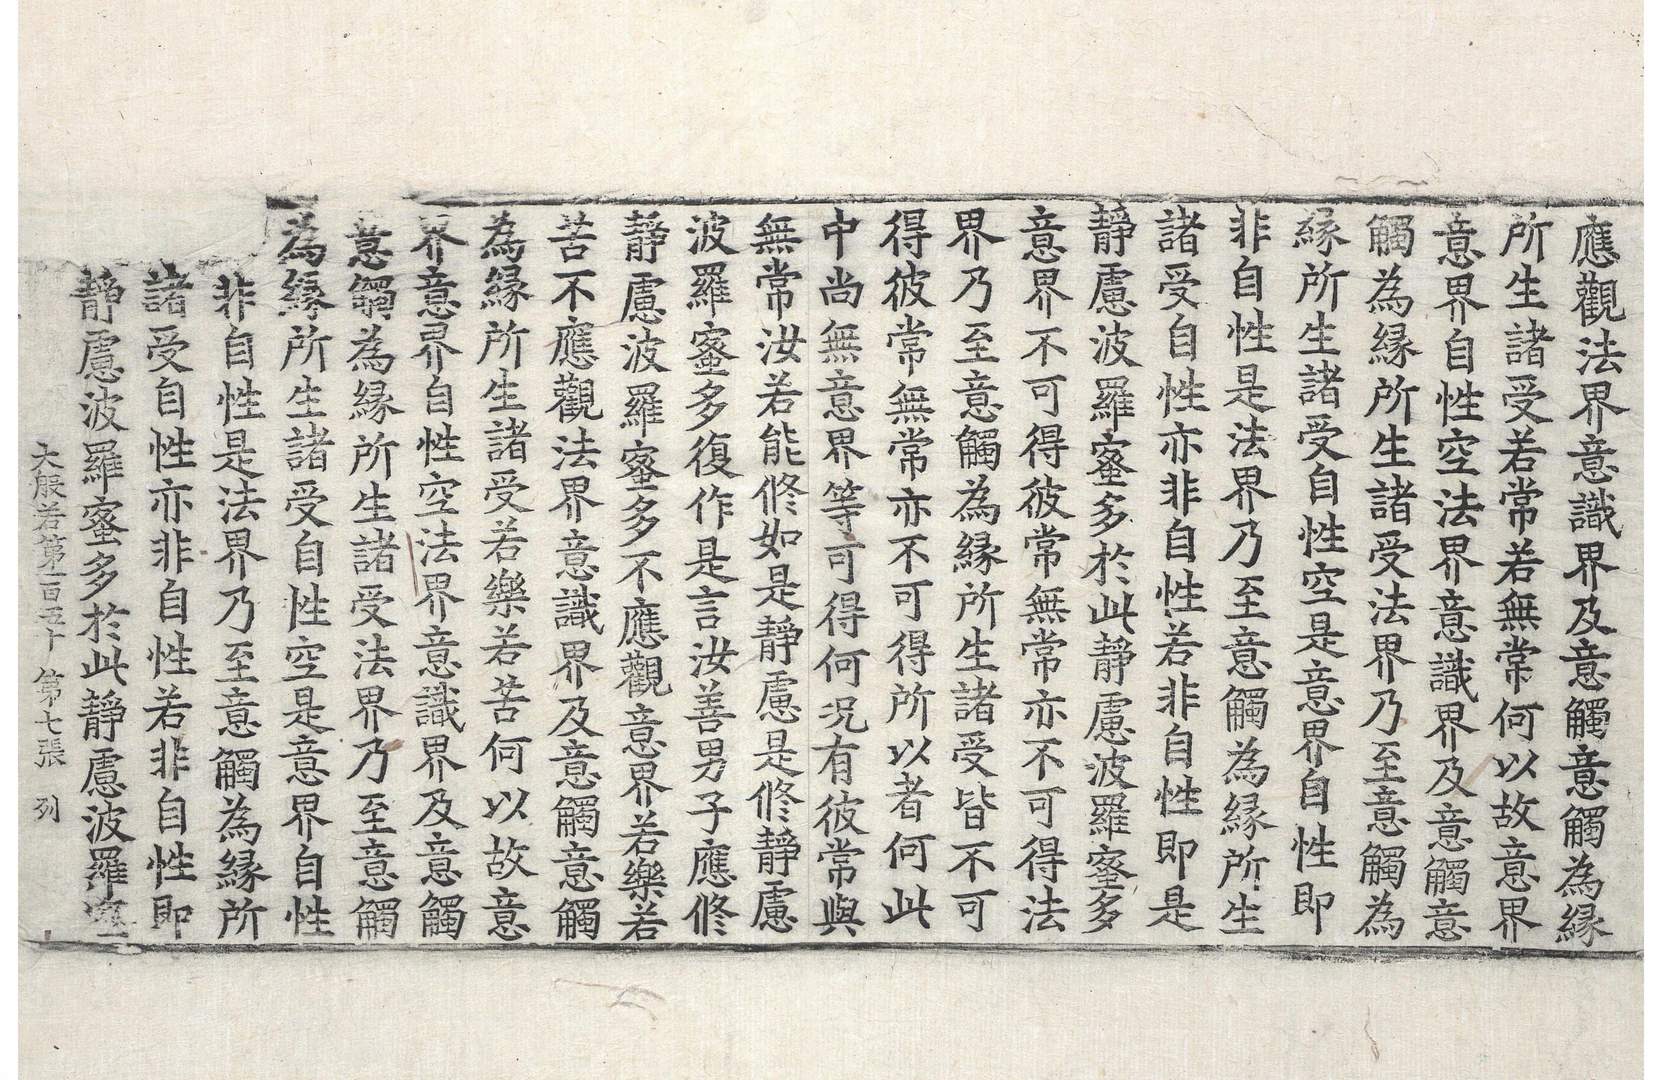 應觀法界意識界及意觸意觸為緣
所生諸受若常若無常何以故意界
意界自性空法界意識界及意觸意
觸為緣所生諸受法界乃至意觸為
緣所生諸受自性空是意界自性即
非自性是法界乃至意觸為緣所生
諸受自性亦非自性若非自性即是
靜慮波羅蜜多於此靜慮波羅蜜多
意界不可得彼常無常亦不可得法
界乃至意觸為緣所生諸受皆不可
得彼常無常亦不可得所以者何此
中尚無意界等可得何況有彼常與
無常汝若能修如是靜慮是修靜慮
波羅蜜多復作是言汝善男子應修
靜慮波羅蜜多不應觀意界若樂若
苦不應觀法界意識界及意觸意觸
為緣所生諸受若樂若苦何以故意
界意界自性空法界意識界及意觸
意觸為緣所生諸受法界乃至意觸
為緣所生諸受自性空是意界自性
非自性是法界乃至意觸為緣所
諸受自性亦非自性若非自性即
靜慮波羅蜜多於此靜慮波羅蜜
大般若第一百五十 第七張 列